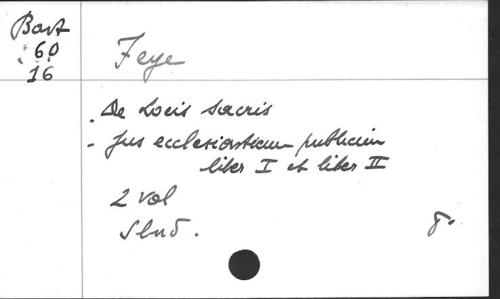 Bast
60
16
Feye
. De Locis sacris
- Jus ecclesiasticum publicum
liber I et liber II
2 vol
Slnd.
8°